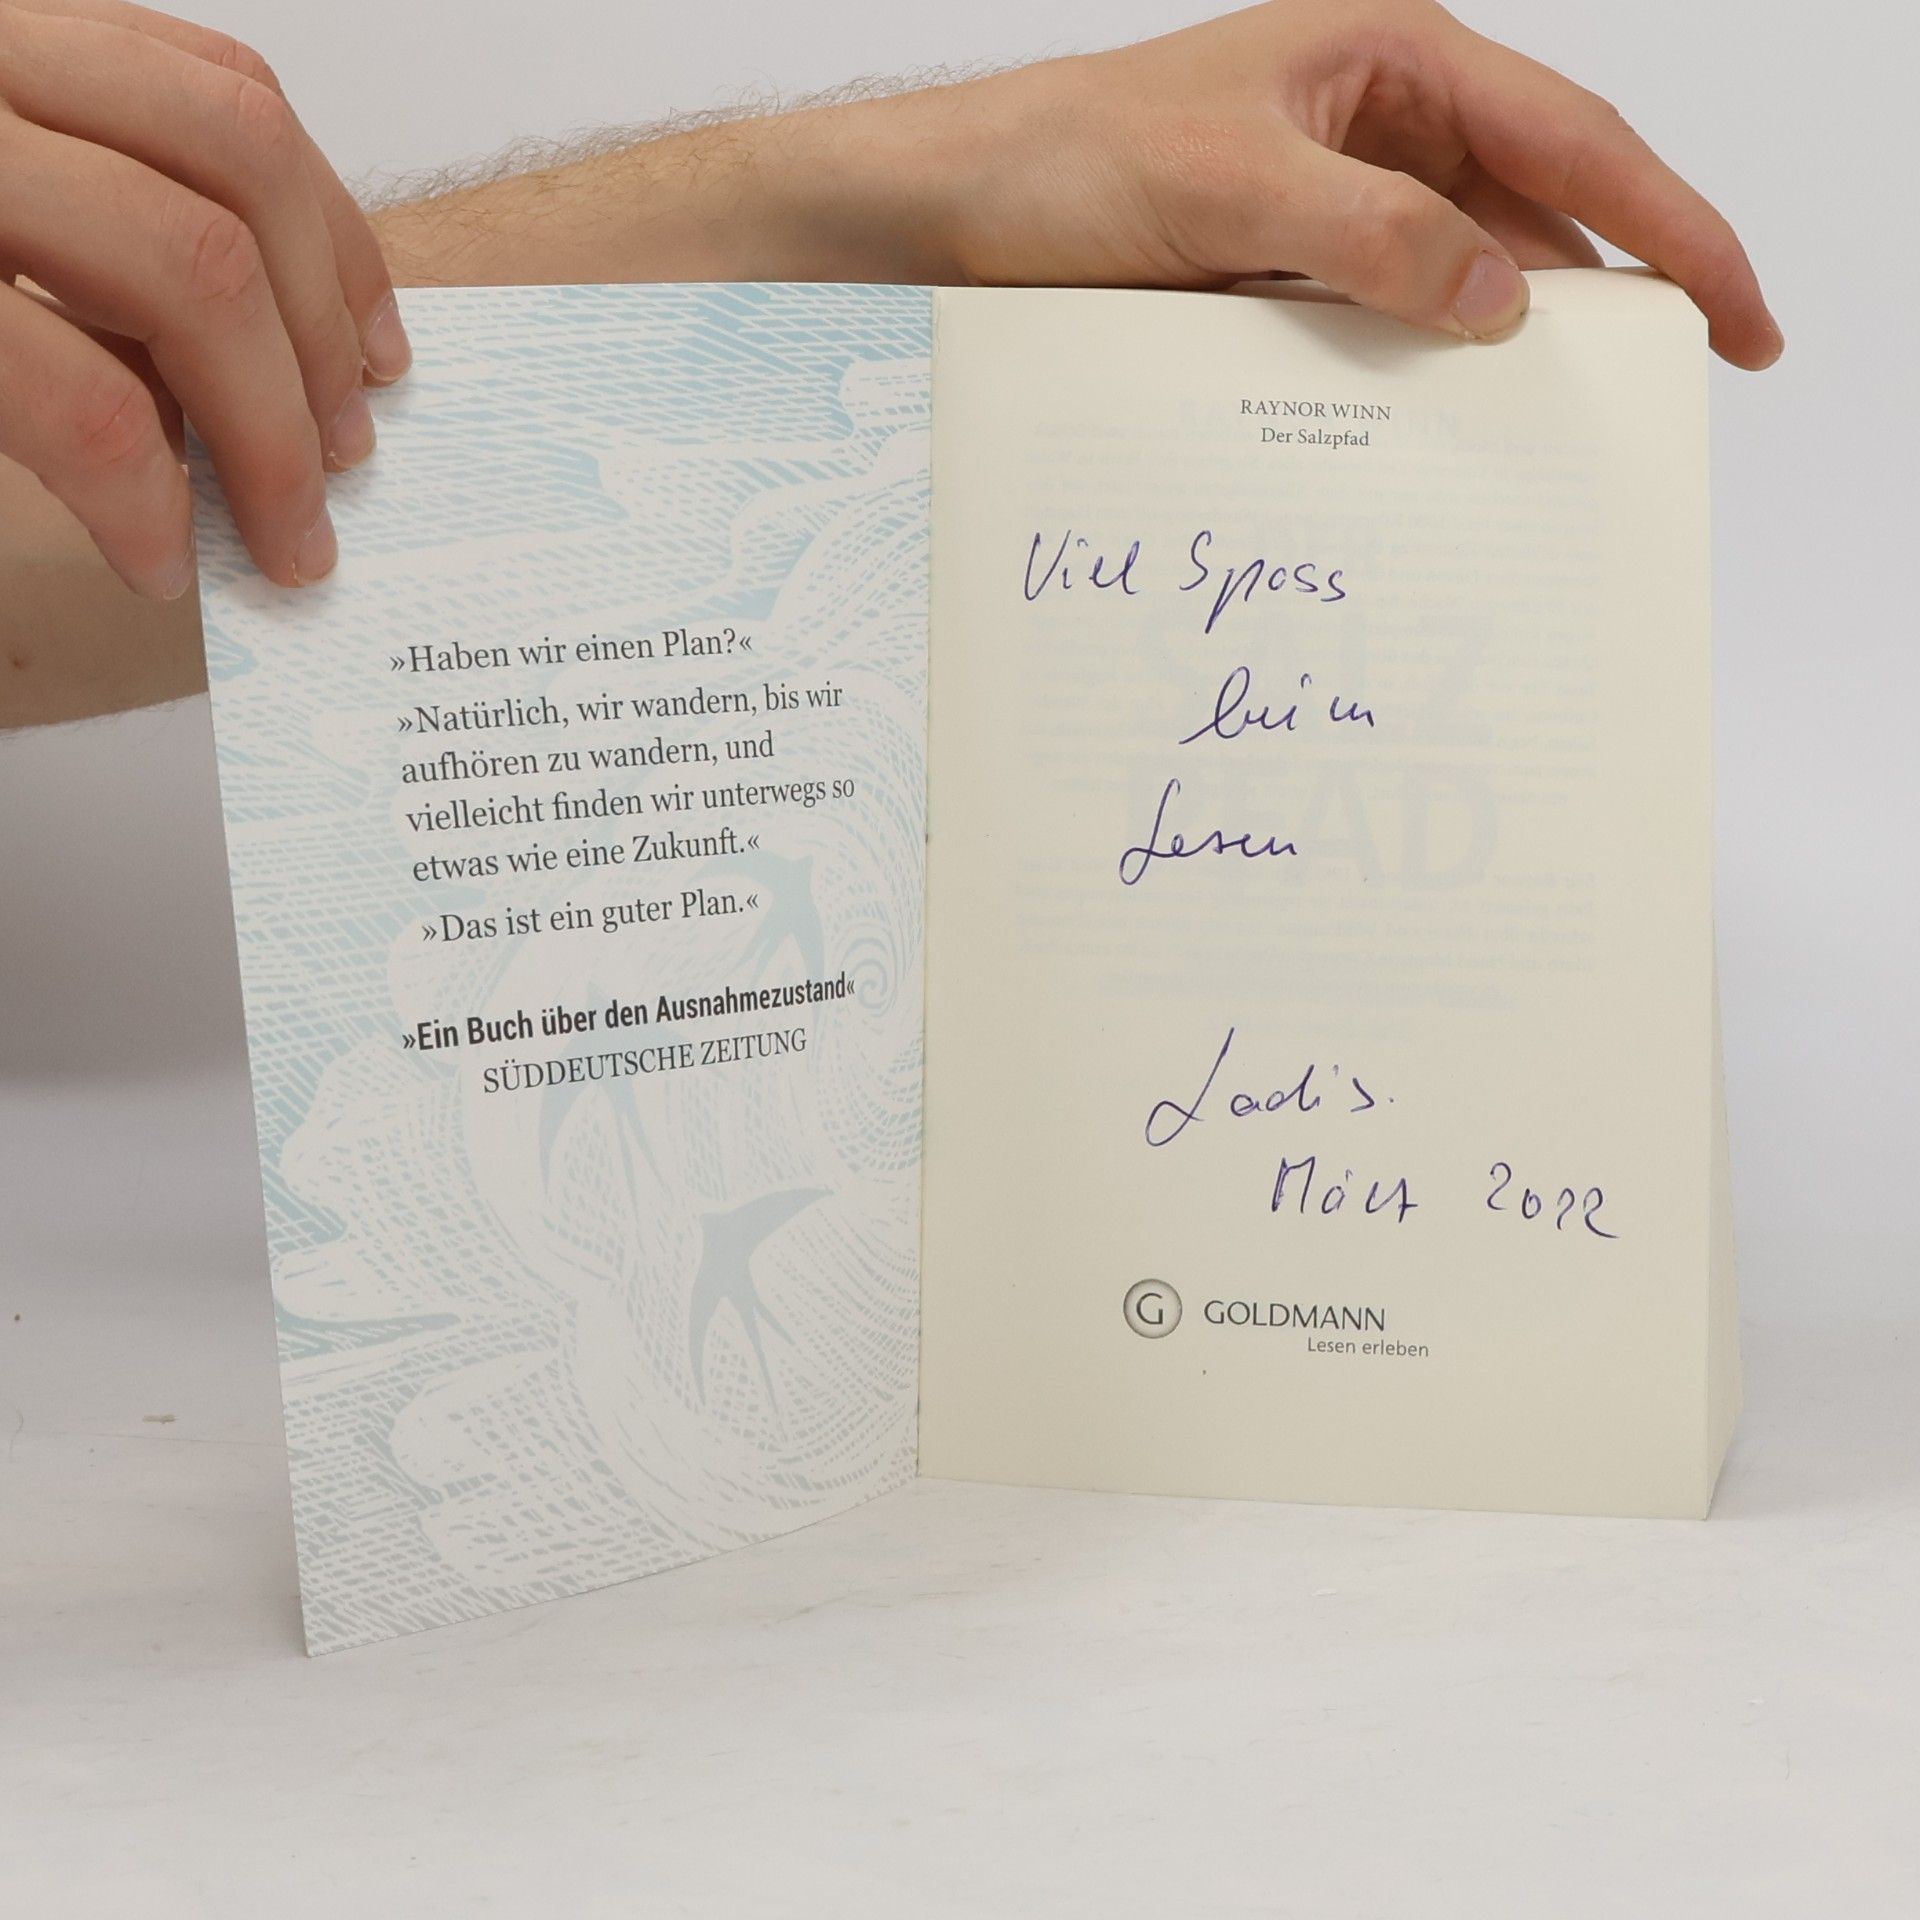 »Haben wir einen Plan?«
»Natürlich, wir wandern, bis wir
aufhören zu wandern, und
vielleicht finden wir unterwegs so
etwas wie eine Zukunft.«
»Das ist ein guter Plan.«
»Ein Buch über den Ausnahmezustand«
SÜDDEUTSCHE ZEITUNG
RAYNOR WINN
Der Salzpfad
Viel Spass
beim
Lesen
Ladis.
März 2022
G GOLDMANN
Lesen erleben